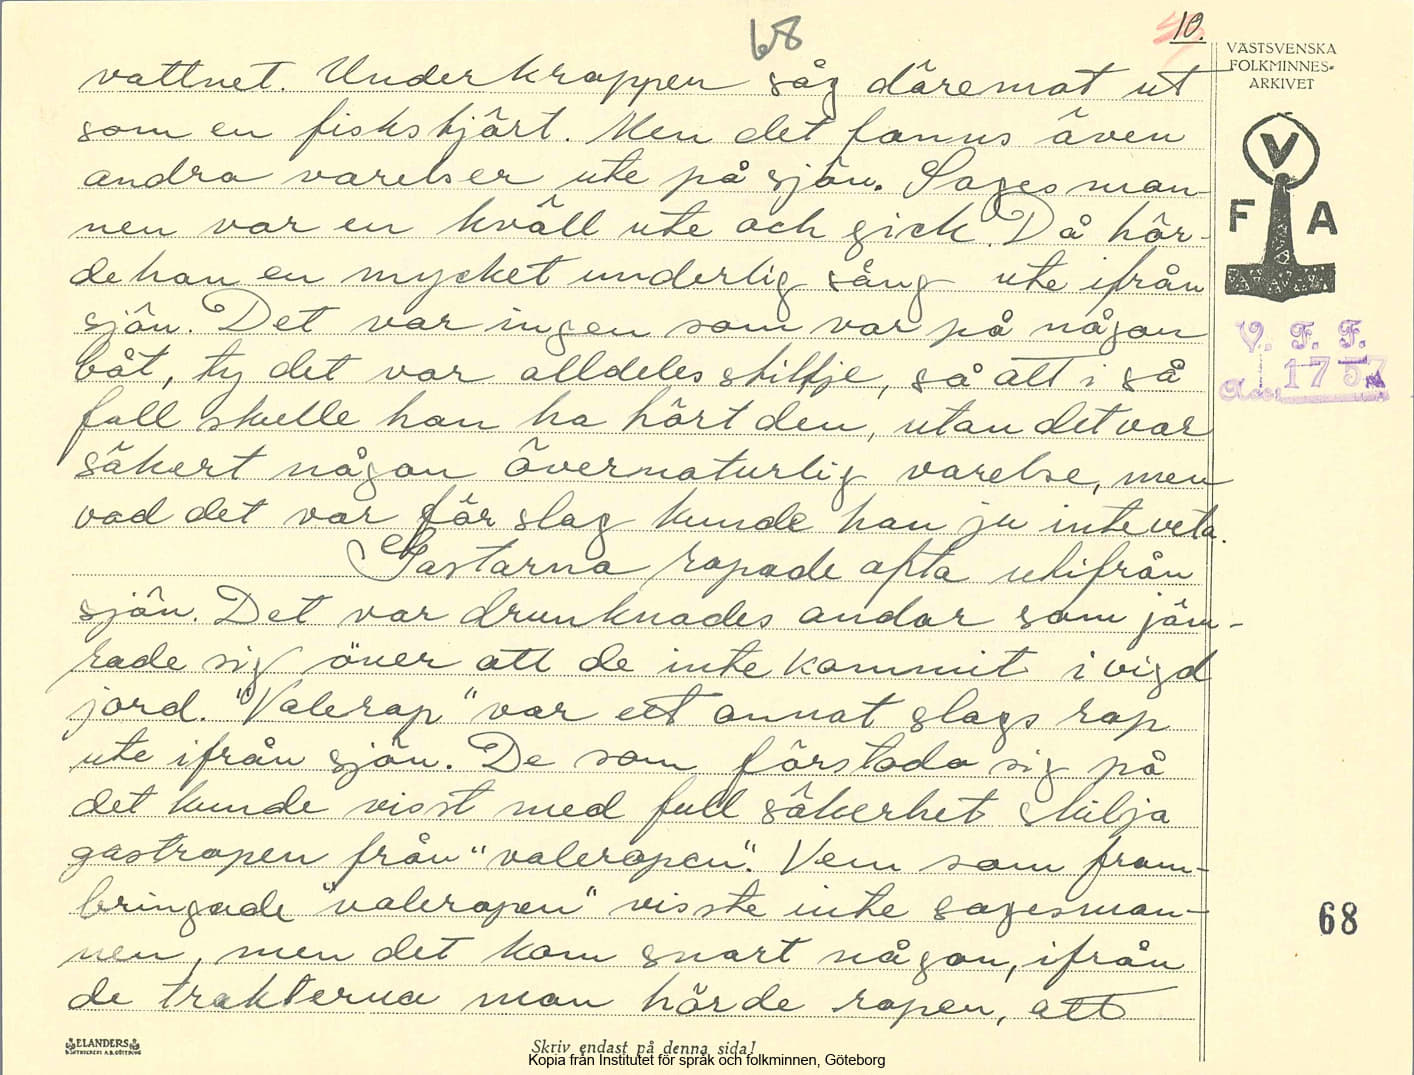 68
10.
VÄSTSVENSKA
FOLKMINNES-
ARKIVET
V
F A
V. F. F.
Acc. 1757
vattnet. Underkroppen såg däremot ut
som en fiskstjärt. Men det fanns även
andra varelser ute på sjön. Sagesman-
nen var en kväll ute och gick. Då hör-
de han en mycket underlig sång ute ifrån
sjön. Det var ingen som var på någon
båt, ty det var alldeles stiltje, så att i så
fall skulle han ha hört den, utan det var
säkert någon övernaturlig varelse, men
vad det var för slag kunde han ju inte veta.
Gastarna ropade ofta utifrån
sjön. Det var drunknades andar som jäm-
rade sig över att de inte kommit i vigd
jord. "Valerop" var ett annat slags rop
ute ifrån sjön. De som förstodo sig på
det kunde visst med full säkerhet skilja
gastropen från "valeropen". Vem som fram-
bringade "valeropen" visste inte sagesman-
nen, men det kom snart någon, ifrån
de trakterna man hörde ropen, att
68
ELANDERS
Skriv endast på denna sida!
Kopia från Institutet för språk och folkminnen, Göteborg